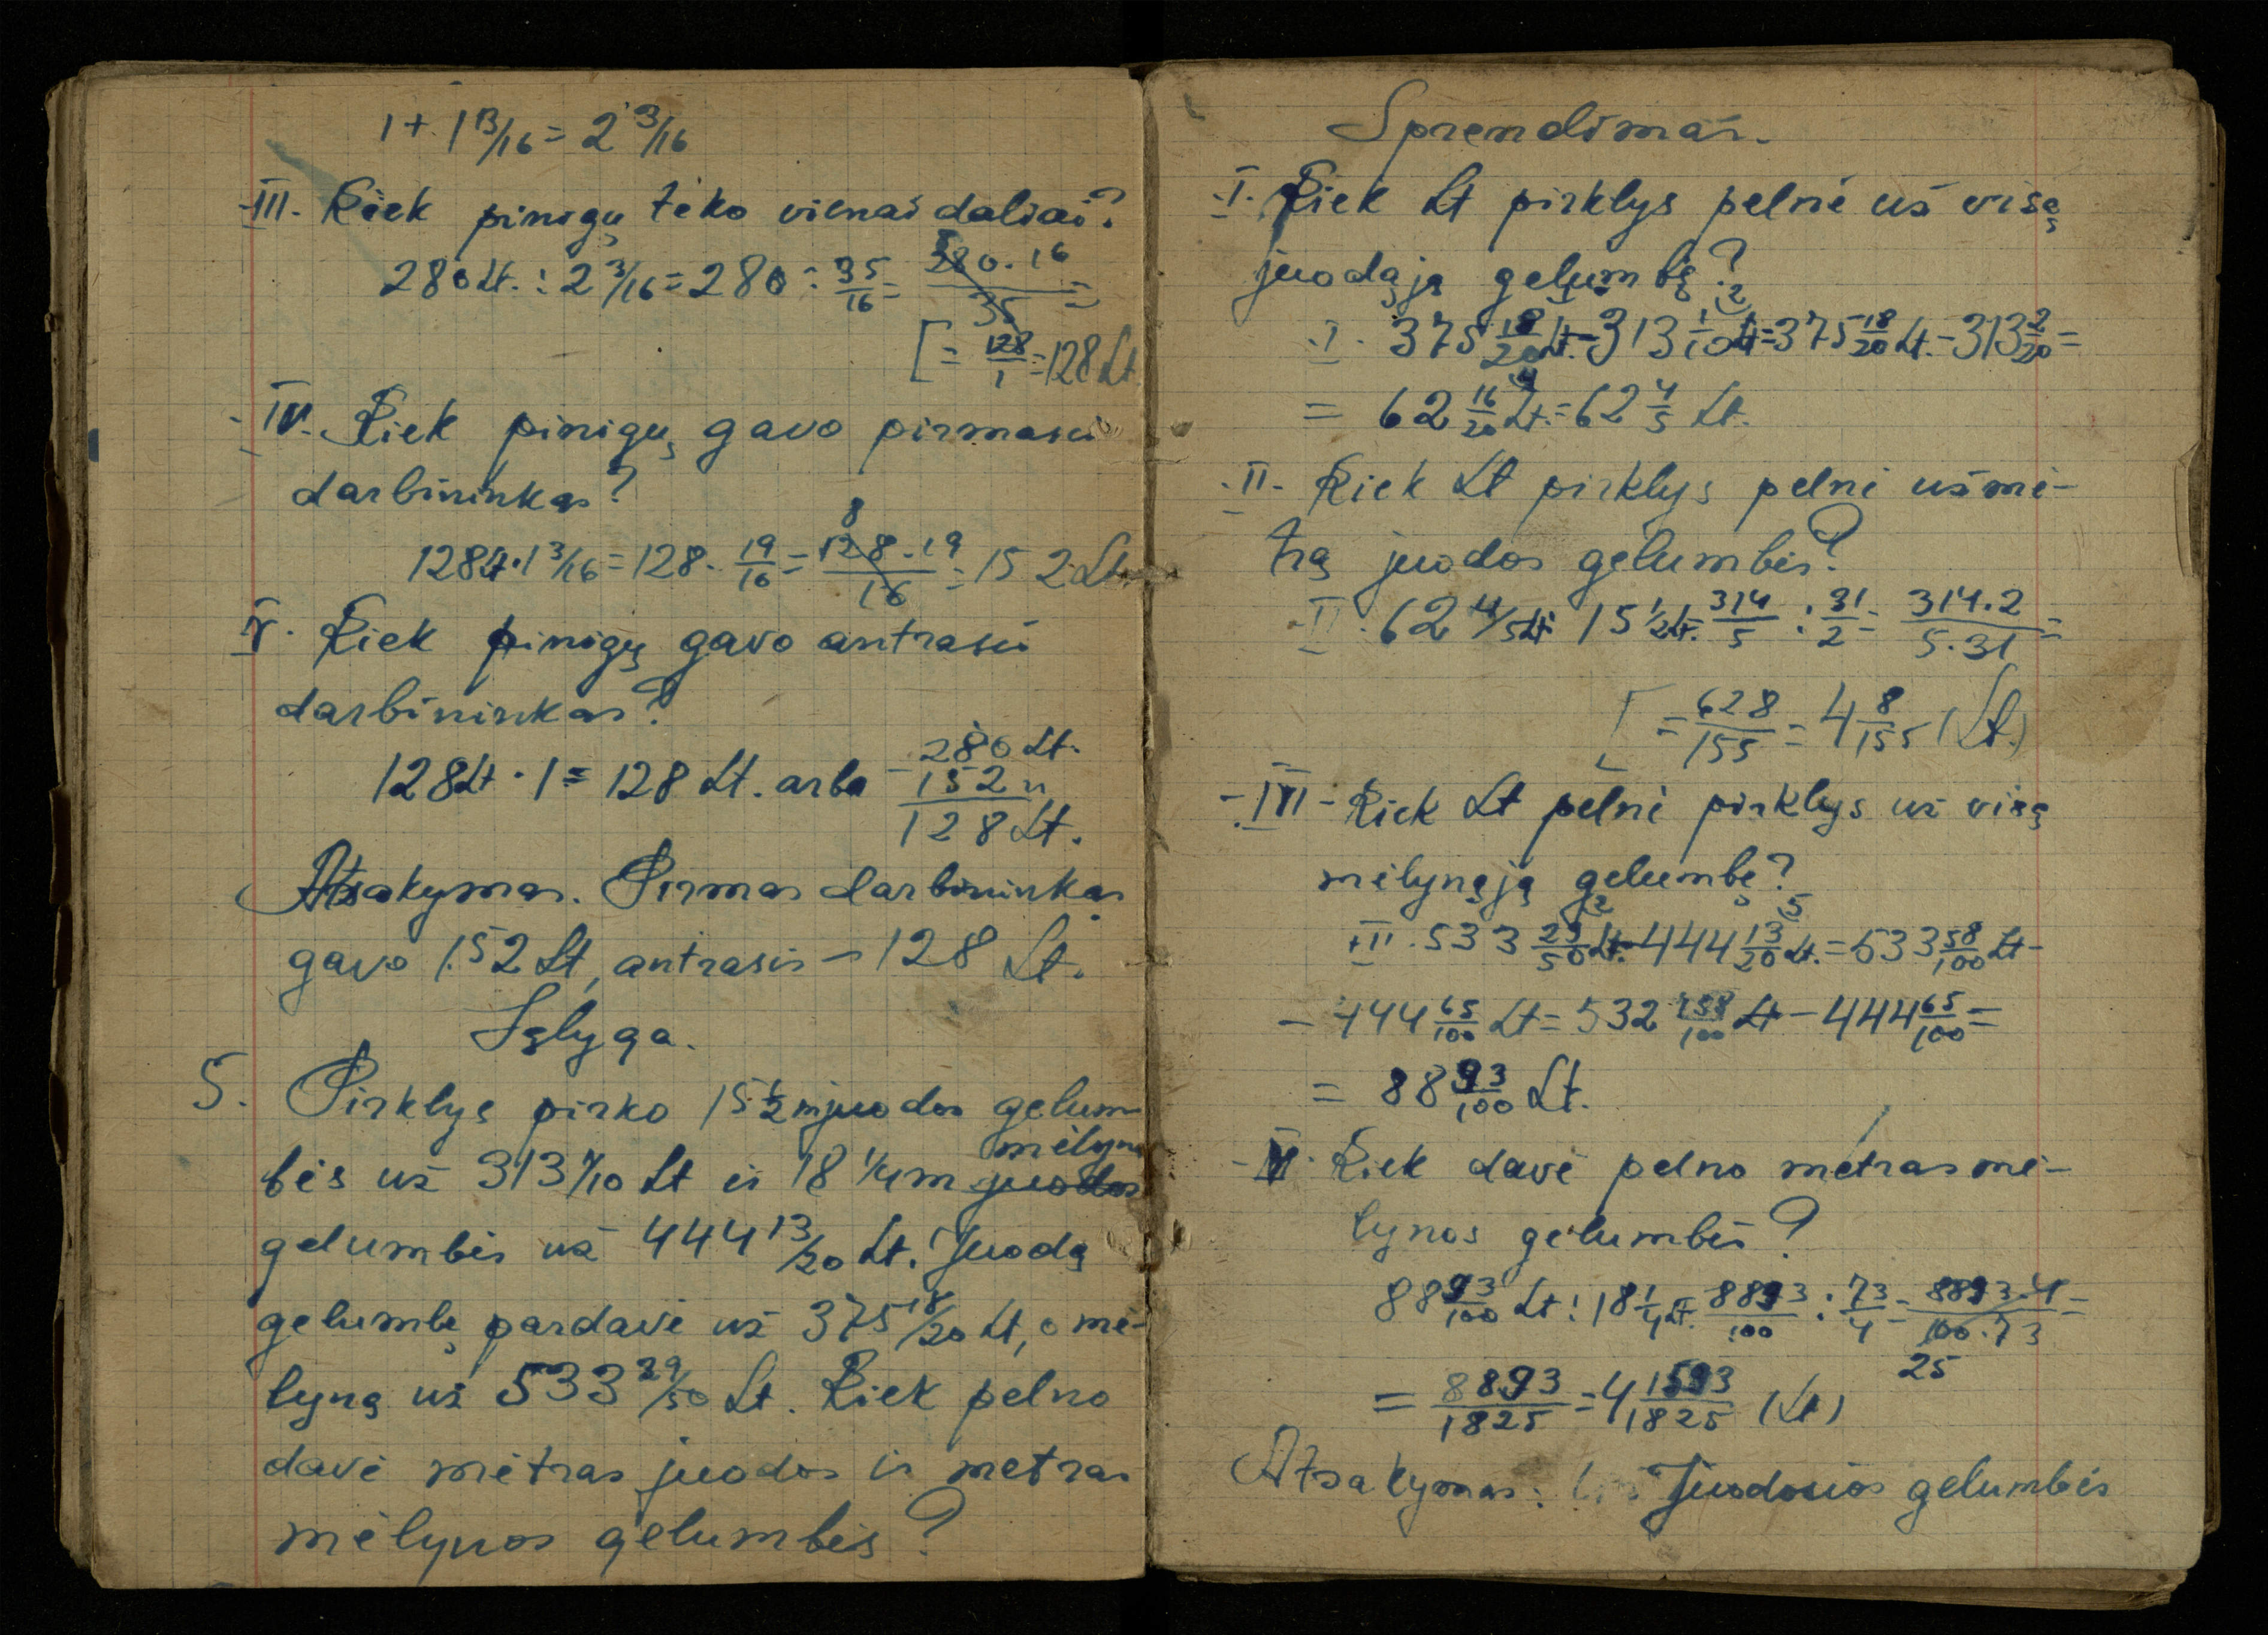 1 + 1 3/16 = 2 3/16
III. Kiek pinigų teko vienai daliai?
280 Lt. : 2 3/16 = 280 : 35/16 = 280·16/35 =
[= 128/1 = 128 Lt
IV. Kiek pinigų gavo pirmasis
darbininkas?
128 Lt · 1 3/16 = 128 · 19/16 = 128·19/16 = 152 Lt.
8
V. Kiek pinigų gavo antrasis
darbininkas?
128 Lt · 1 = 128 Lt. arba - 280 Lt.
152 "
128 Lt.
Atsakymas. Pirmas darbininkas
gavo 152 Lt, antrasis – 128 Lt.
Sąlyga.
5. Pirklys pirko 15 1/2 m juodos gelum-
mėlynos
bės už 313 1/10 Lt ir 18 1/4 m juodos
gelumbės už 444 13/20 Lt. Juodą
gelumbę pardavė už 375 18/20 Lt, o mė-
lyną už 533 29/50 Lt. Kiek pelno
davė metras juodos ir metras
mėlynos gelumbės?
Sprendimas.
I. Kiek Lt pirklys pelnė už visą
juodąją gelumbę?
I. 375 18/20 Lt. - 313 1/10 Lt = 375 18/20 Lt. - 313 2/20 =
= 62 16/20 Lt. = 62 4/5 Lt.
II. Kiek Lt pirklys pelnė už me-
trą juodos gelumbės?
II. 62 4/5 Lt : 15 1/2 Lt. = 314/5 : 31/2 = 314·2/5·31 =
[= 628/155 = 4 8/155 (Lt.)
III - Kiek Lt pelnė pirklys už visą
mėlynąją gelumbę?
III. 533 29/50 Lt. - 444 13/20 Lt. = 533 58/100 Lt -
- 444 65/100 Lt = 532 158/100 Lt - 444 65/100 =
= 88 93/100 Lt.
IV. Kiek davė pelno metras mė-
lynos gelumbės?
88 93/100 Lt : 18 1/4 Lt. = 8893/100 : 73/4 = 8893·4/100·73 =
25
= 8893/1825 = 4 1593/1825 (Lt)
Atsakymas: Juodosios gelumbės